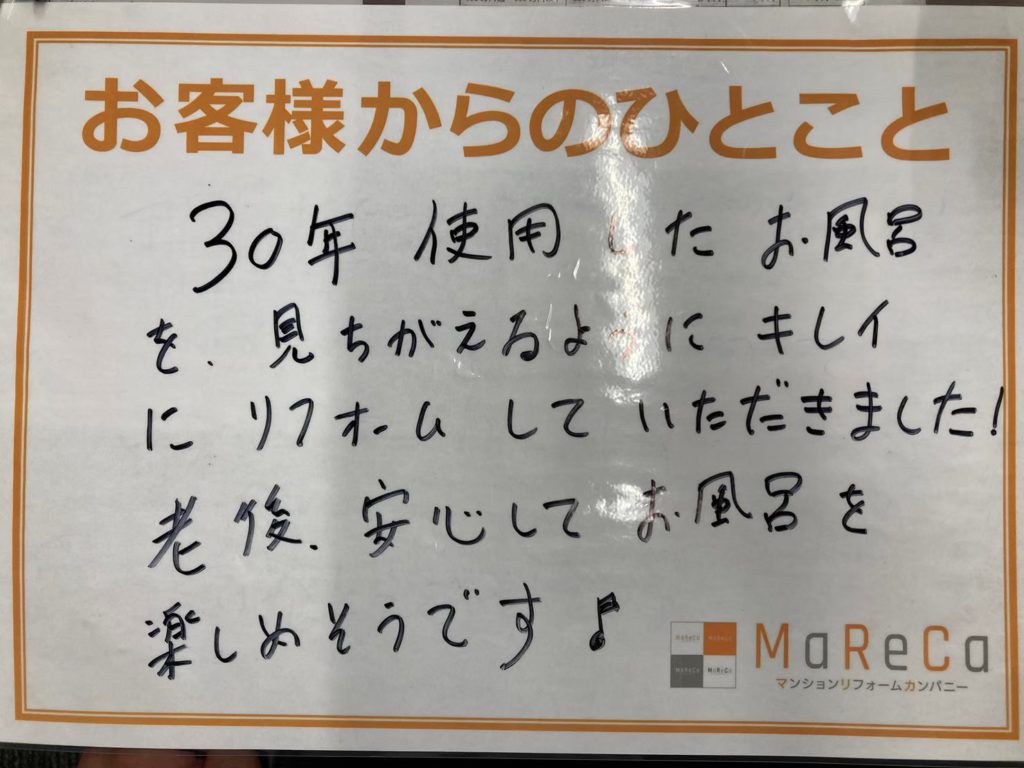 お客様からのひとこと
30年 使用したお風呂
を、見ちがえるように キレイ
に リフォームしていただきました!
老後、安心してお風呂を
楽しめそうです♪
MaReCa
マンションリフォームカンパニー